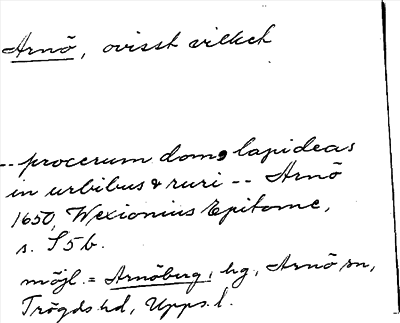 Arnö, ovisst vilket
-- procerum domos lapideas
in urbibus & ruri -- Arnö
1650, Wexionius Epitome,
s. S5b.
möjl. = Arnöberg, hg, Arnö sn,
Trögds hd, Upps. l.